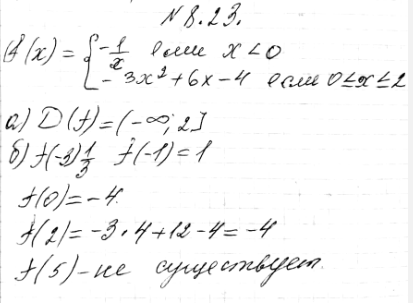 № 8.23.
f(x) = { -1/x если x < 0
-3x² + 6x - 4 если 0 ≤ x ≤ 2
а) D(f) = (-∞; 2]
б) f(-3) 1/3 f(-1) = 1
f(0) = -4.
f(2) = -3 · 4 + 12 - 4 = -4
f(5) - не существует.